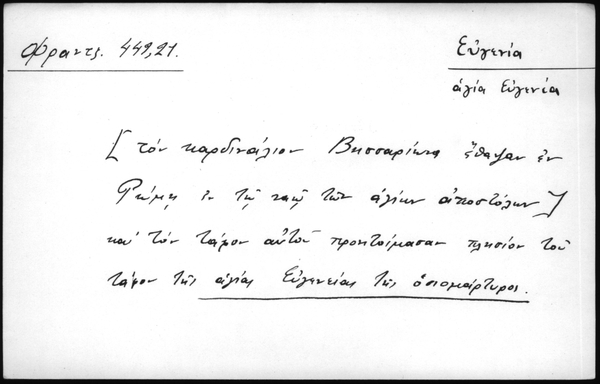 Φραντζ. 449,21.
Εὐγενία
ἁγία Εὐγενία
[τὸν καρδινάλιον Βησσαρίωνα ἔθαψαν ἐν
Ρώμῃ ἐν τῷ ναῷ τῶν ἁγίων ἀποστόλων]
καὶ τὸν τάφον αὐτοῦ προητοίμασαν πλησίον τοῦ
τάφου τῆς ἁγίας Εὐγενείας τῆς ὁσιομάρτυρος.